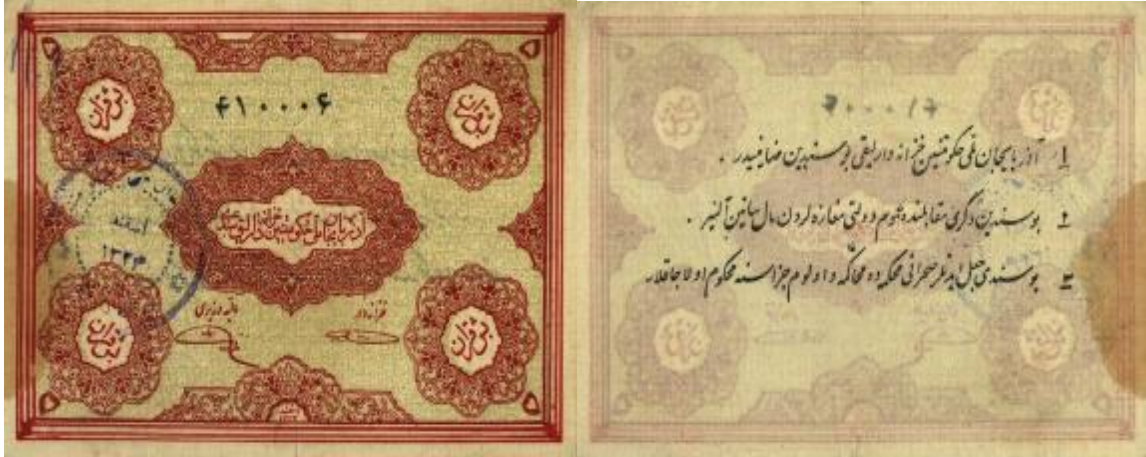 ۵ ۵
بش قران ۴۱۰۰۰۶ بش قران
آذربایجان ملی حکومتینین خزانه دارلیق سندی
اسفند
۱۳۲۴
مالیه وزیری خزانه دار
بش قران بش قران
۵ ۵
۱ آذربایجان ملی حکومتینین خزانه دارلیقی بو سندین ضامنیدر .
۲ بو سندین دگری مقابلنده عموم دولتی مغازه لردن مال ساتین آلنیر .
۳ بو سندی جعل ایدنلر صحرائی محکمه ده محاکمه و اولوم جزاسنه محکوم اولاجاقلار